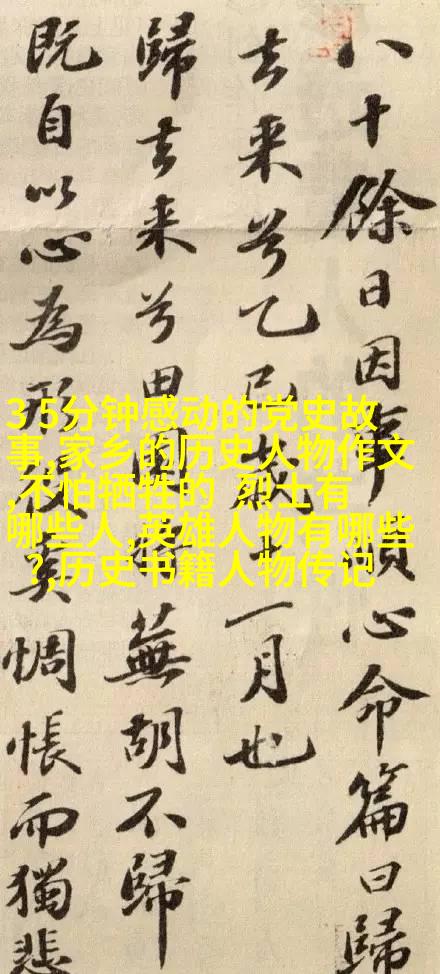 八十餘日因事順心命篇曰歸
去来兮乙巳歲十一月也
歸去来兮田園将蕪胡不歸
既自以心為形役奚惆悵而獨悲
3 5分钟感动的党史故
事,家乡的历史人物作文
,不怕牺牲的 烈士有
哪些人,英雄人物有哪些
?,历史书籍人物传记